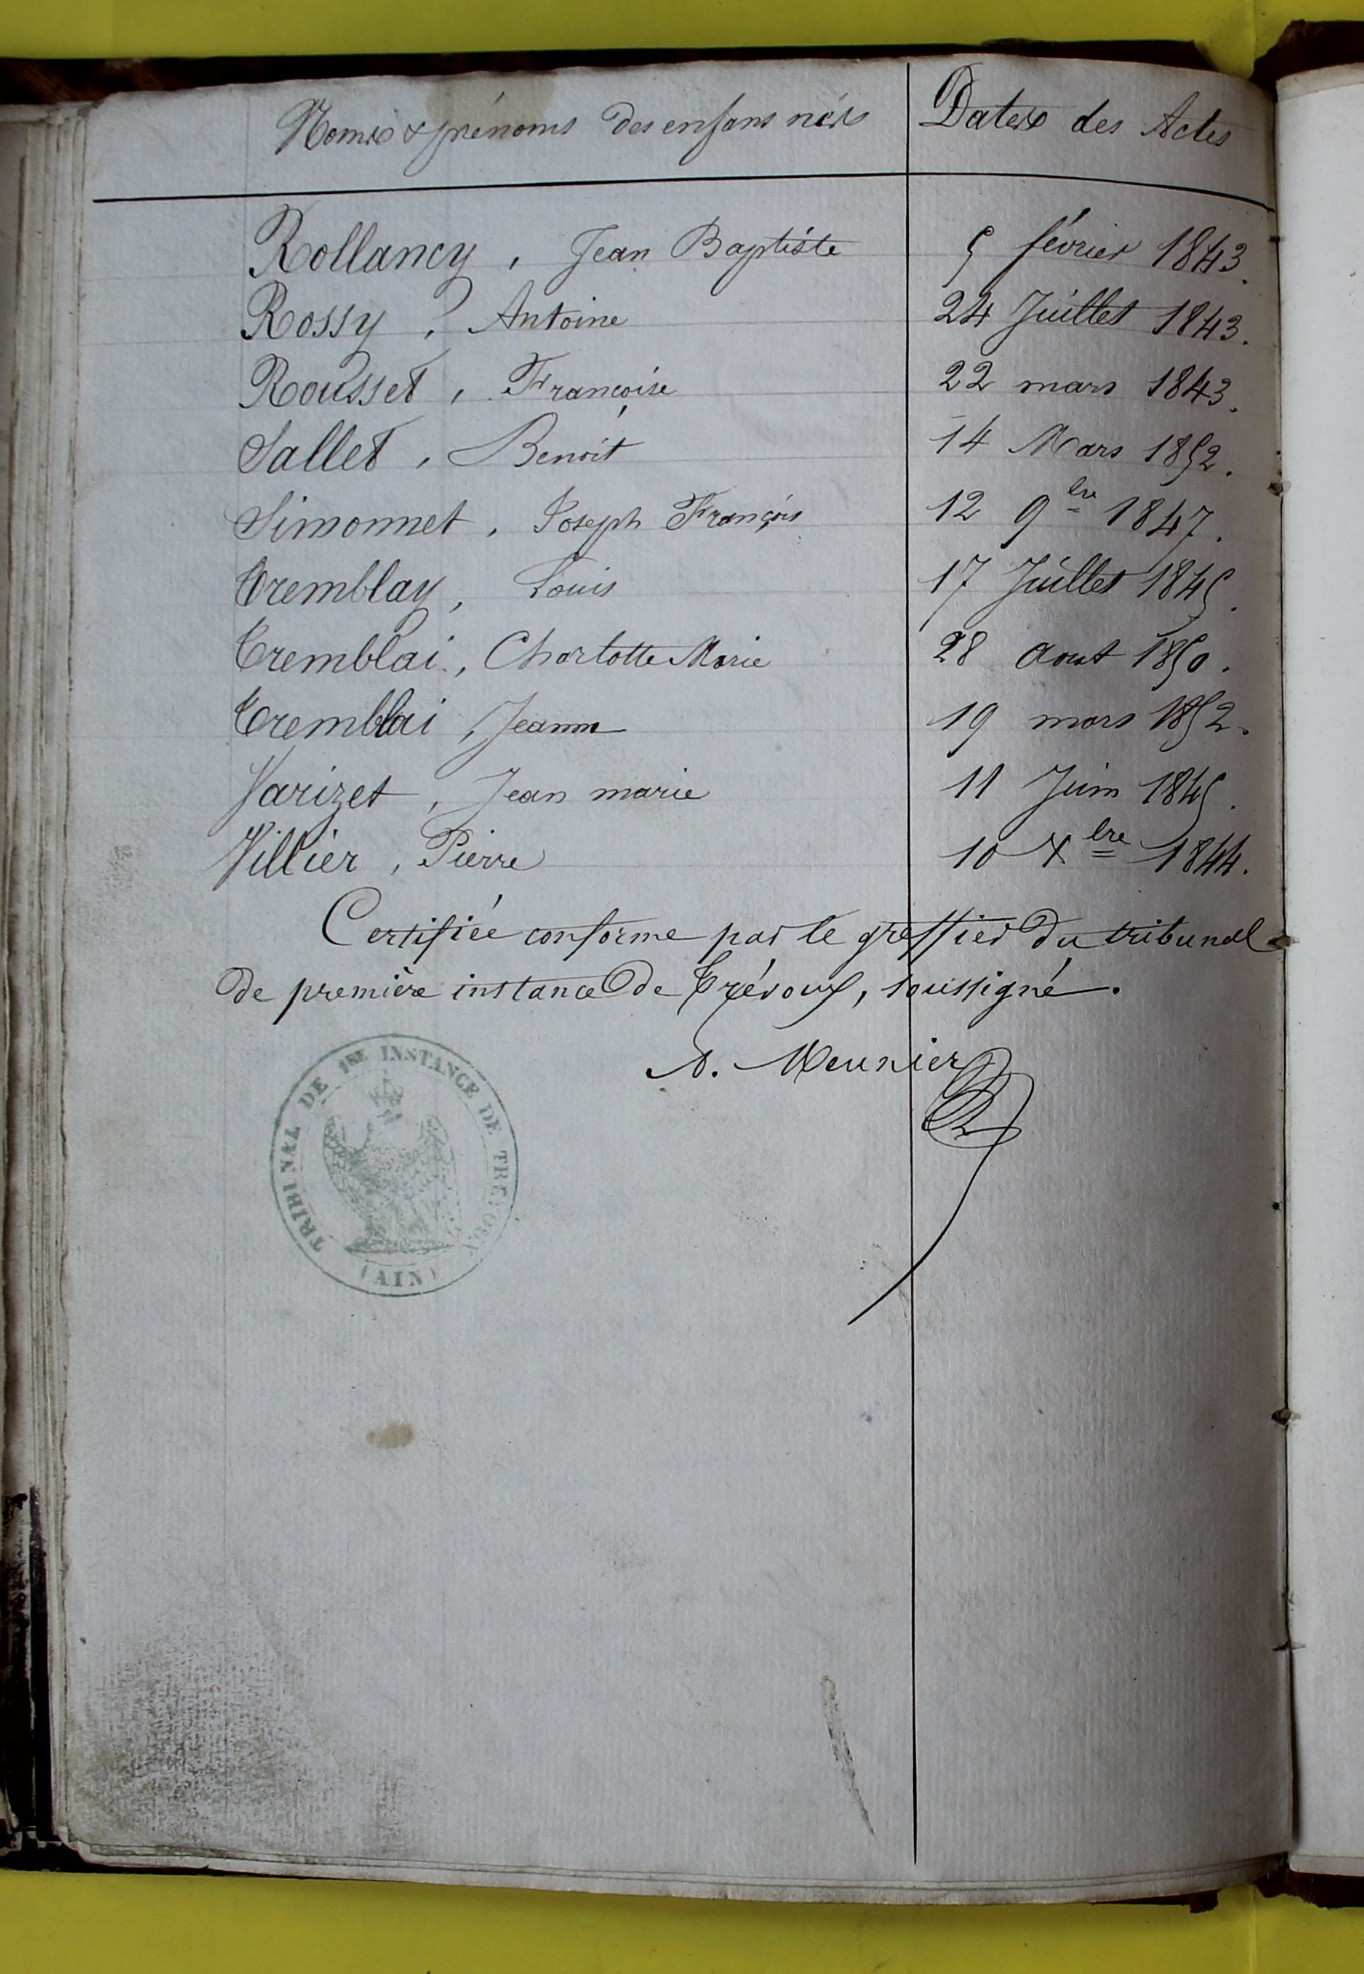 Noms & prénoms des enfans nés Dates des Actes
Rollancy, Jean Baptiste 5 février 1843.
Rossy, Antoine 24 Juillet 1843.
Rousset, Françoise 22 mars 1843.
Sallet, Benoit 14 Mars 1852.
Simonnet, Joseph François 12 9bre 1847.
Tremblay, Louis 17 Juillet 1845.
Tremblai, Charlotte Marie 28 Aout 1850.
Tremblai, Jeanne 19 mars 1852.
Varizet, Jean marie 11 Juin 1845.
Villier, Pierre 10 Xbre 1844.
Certifiée conforme par le greffier du tribunal
de première instance de Trévoux, soussigné.
A. Meunier
TRIBUNAL DE 1RE INSTANCE DE TREVOUX
(AIN)